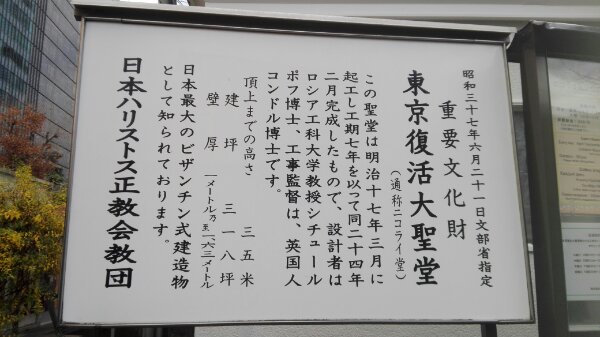 昭和三十七年六月二十一日文部省指定
重要文化財
東京復活大聖堂
(通称ニコライ堂)
この聖堂は明治十七年三月に
起工し工期七年を以って同二十四年
二月完成したもので、設計者は
ロシア工科大学教授シチュール
ポフ博士、工事監督は、英国人
コンドル博士です。
頂上までの高さ 三五米
建坪 三一八坪
壁厚 一メートル乃至一、六三メートル
日本最大のビザンチン式建造物
として知られております。
日本ハリストス正教会教団